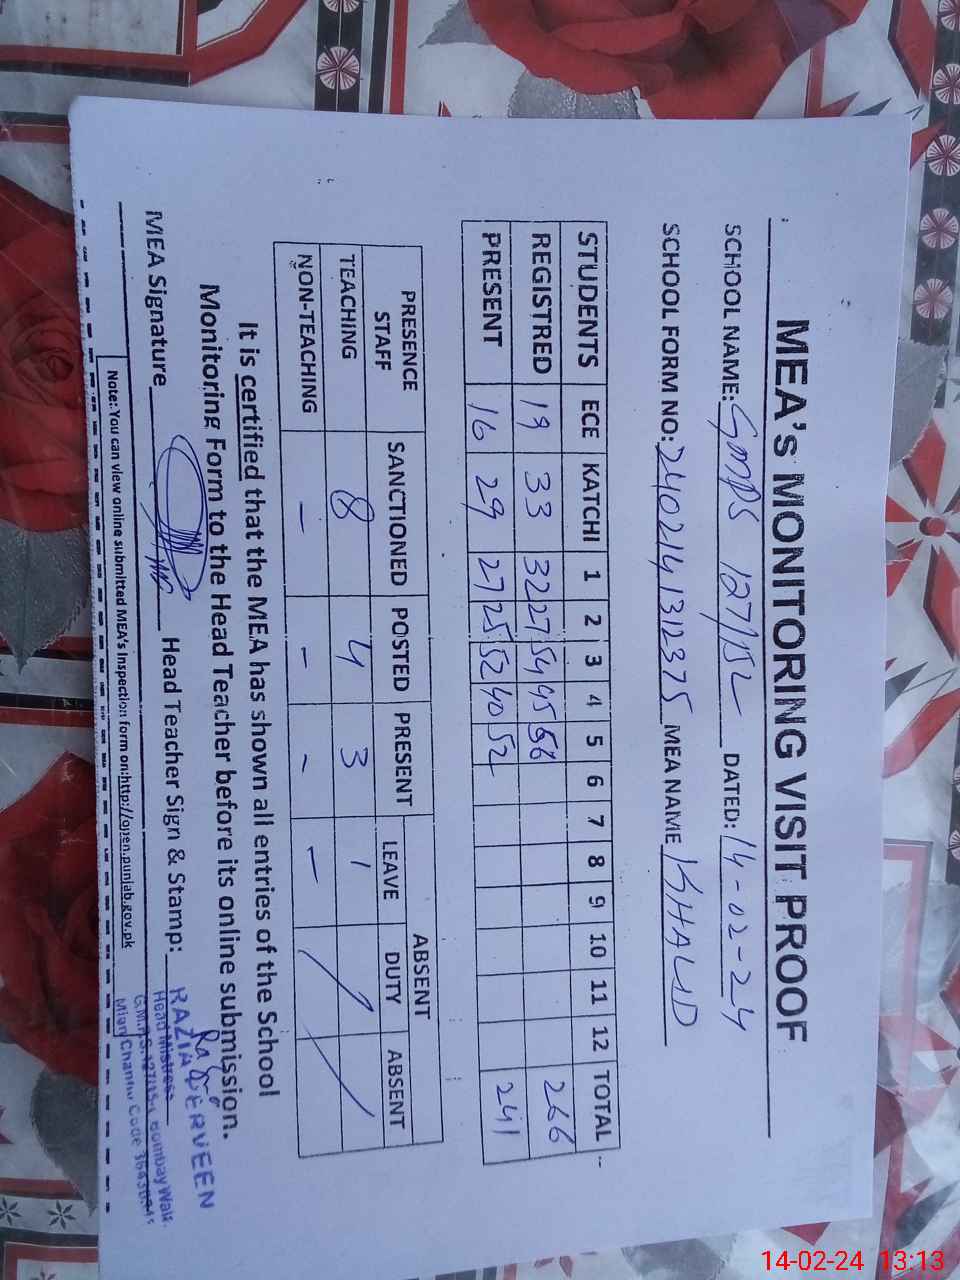 MEA's MONITORING VISIT PROOF
SCHOOL NAME: GMPS 127/15L DATED: 14-02-24
SCHOOL FORM NO: 2402141312375 MEA NAME KHALID
STUDENTS ECE KATCHI 1 2 3 4 5 6 7 8 9 10 11 12 TOTAL
REGISTRED 19 33 32 27 54 45 56 266
PRESENT 16 29 27 25 52 40 52 241
PRESENCE STAFF SANCTIONED POSTED PRESENT ABSENT
LEAVE DUTY ABSENT
TEACHING 8 4 3 1
NON-TEACHING - - - -
It is certified that the MEA has shown all entries of the School
Monitoring Form to the Head Teacher before its online submission.
MEA Signature Head Teacher Sign & Stamp:
RAZIA PERVEEN
Head Mistress
G.M.P.S. 127/15-L Bombay Wala
Mian Channu Code
Note: You can view online submitted MEA's Inspection form on:http://open.punjab.gov.pk
14-02-24 13:13